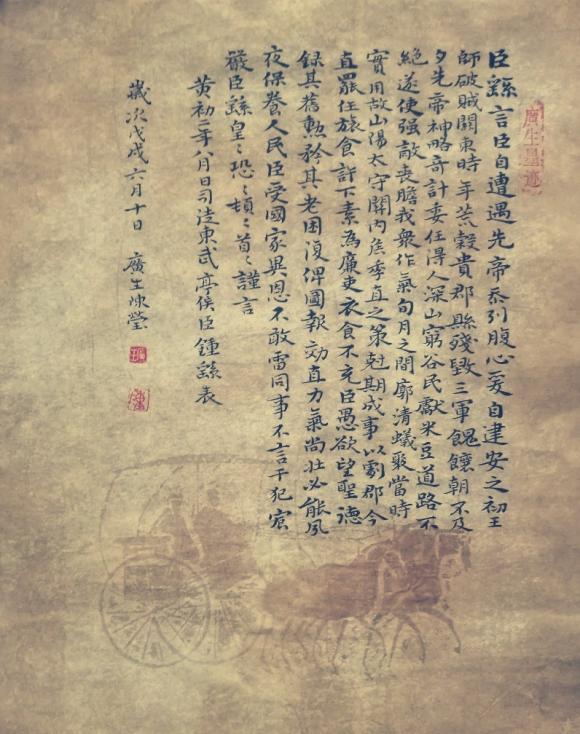 廣生墨迹
臣繇言臣自遭遇先帝忝列腹心爰自建安之初王
師破賊關東時年荒穀貴郡縣殘毀三軍餽饟朝不及
夕先帝神略奇計委任得人深山窮谷民獻米豆道路不
絕遂使强敵喪膽我衆作氣旬月之間廓清蟻聚當時
實用故山陽太守關內侯季直之策尅期成事以劇郡今
直罷任旅食許下素為廉吏衣食不充臣愚欲望聖德
録其舊勲矜其老困復俾圖報効直力氣尚壯必能夙
夜保養人民臣受國家異恩不敢雷同事不言干犯宸
嚴臣繇皇〻恐〻頓〻首〻謹言
黃初二年八月日司徒東武亭侯臣鍾繇表
歲次戊戌六月十日 廣生陳瑩